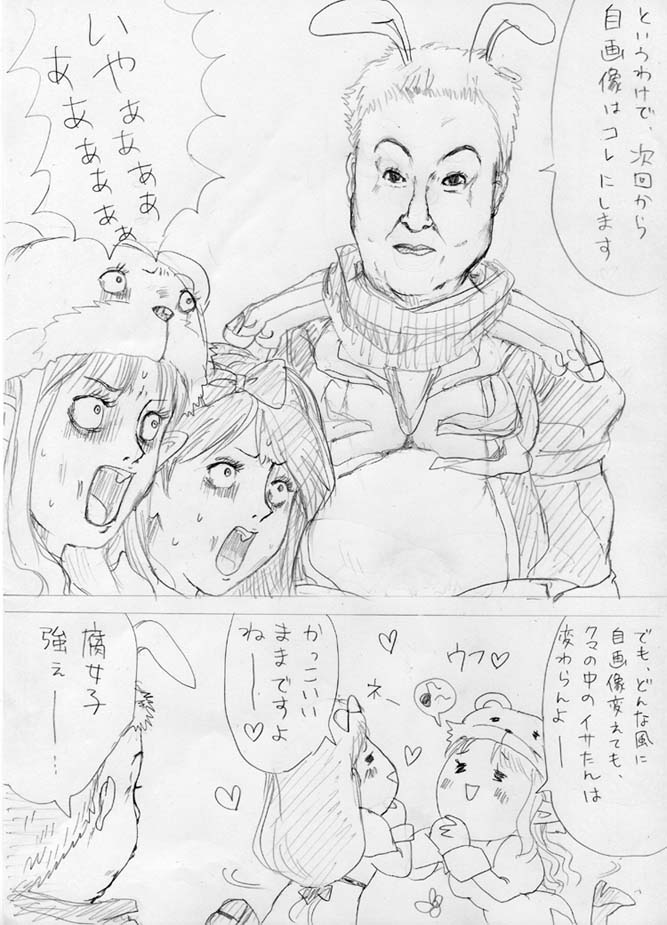 というわけで、次回から
自画像は コレにします
いやぁぁぁぁ
ああぁぁぁぁ
でも、どんな風に
自画像変えても、
クマの中のイサたんは
変わらんよー
ウフ♡
ネー
かっこいい
ままですよ
ねーー♡
腐女子
強ぇー…